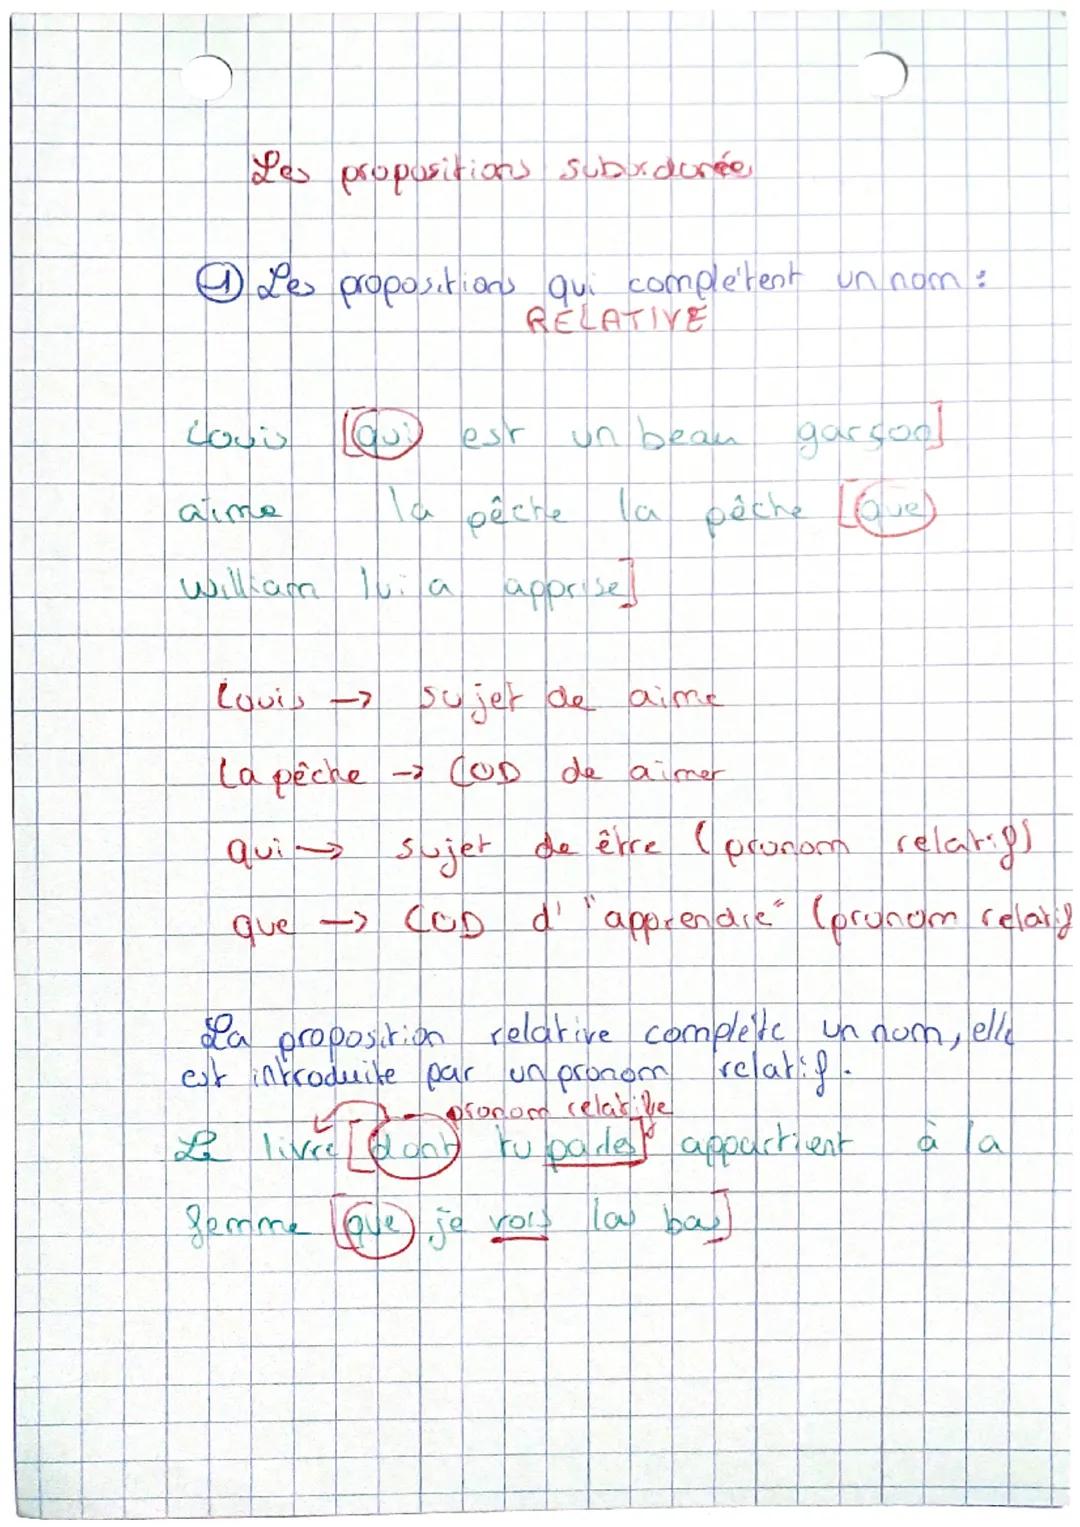 Les propositions subordurée
① Les propositions qui complètent un nom :
RELATIVE
Louis [qui est un beau garçon]
aime la pêche la pêche [que
william lui a apprise]
Louis → sujet de aime
La pêche → COD de aimer
qui → sujet de être (pronom relatif)
que → COD d' "apprendre" (pronom relatif
La proposition relative complète un nom, elle
est introduite par un pronom relatif.
pronom relative
Le livre [dont tu parles] appartient à la
femme [que je vois las bas]